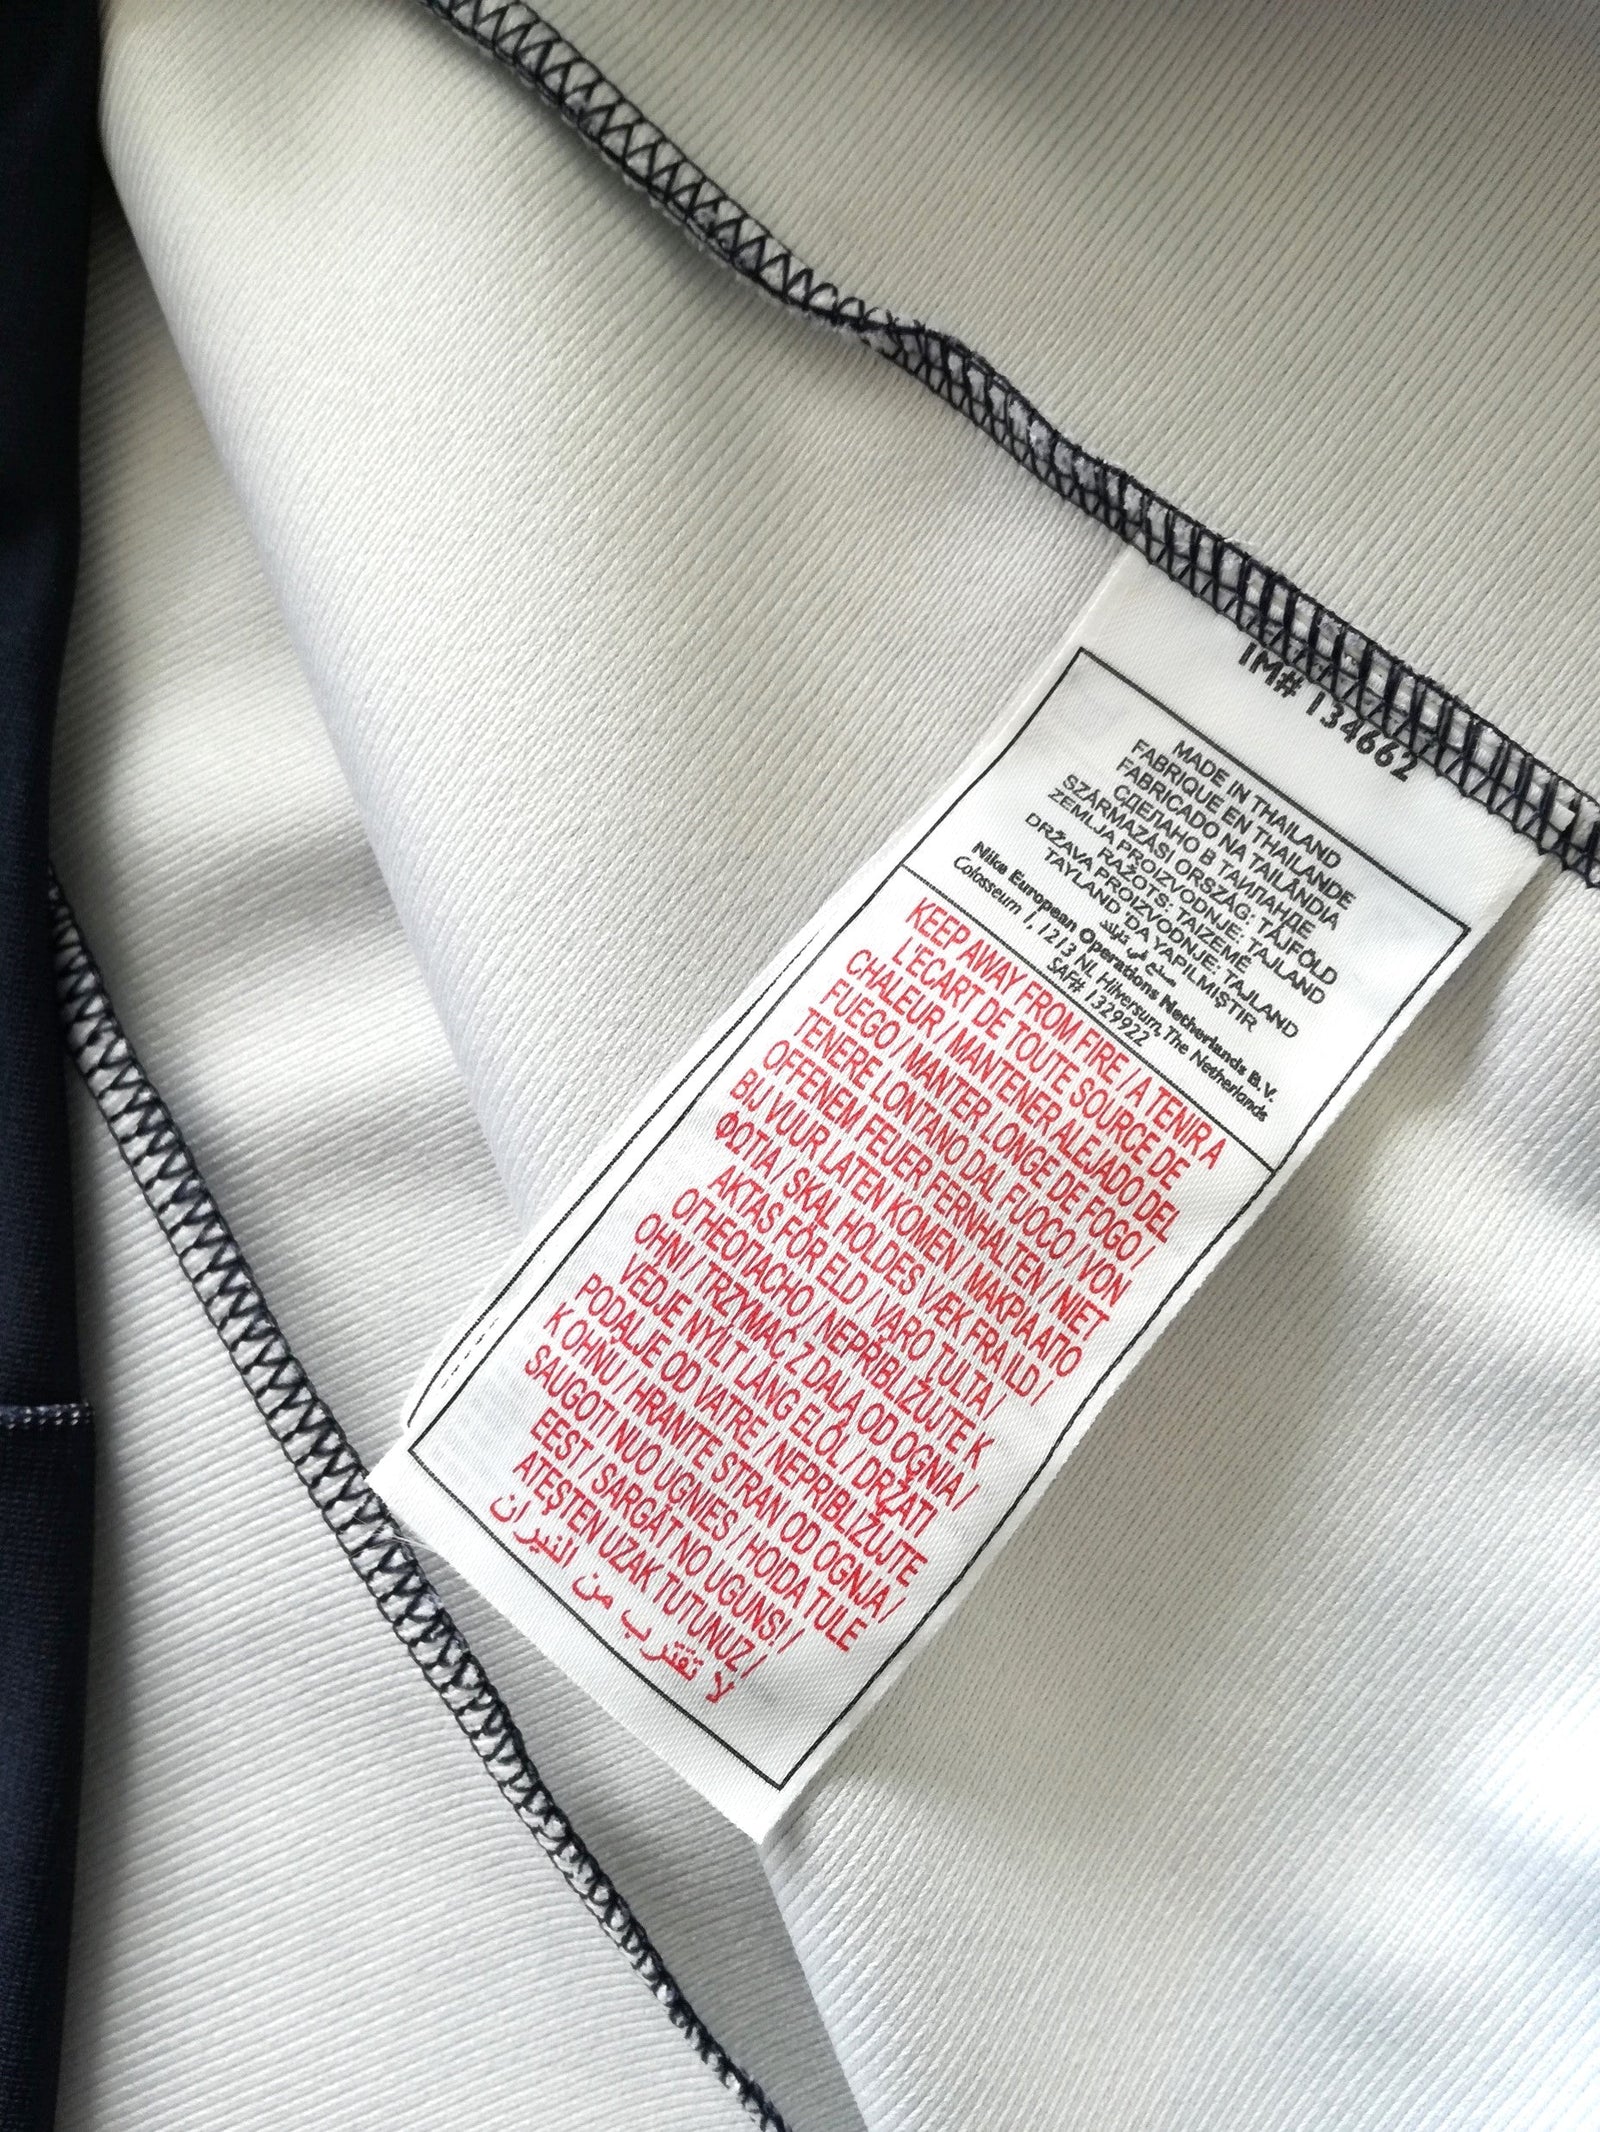 IM# 134662
MADE IN THAILAND
FABRIQUE EN THAILANDE
FABRICADO NA TAILÂNDIA
СДЕЛАНО В ТАИЛАНДЕ
SZÁRMAZÁSI ORSZÁG: TÁJFÖLD
ZEMLJA PROIZVODNJE: TAJLAND
RAŽOTS: TAIZEMĒ
DRŽAVA PROIZVODNJE: TAJLAND
TAYLAND 'DA YAPILMIŞTIR
صنع في تايلند
Nike European Operations Netherlands B.V.
Colosseum 1, 1213 NL Hilversum, The Netherlands
SAF# 1329922
KEEP AWAY FROM FIRE / A TENIR A
L'ECART DE TOUTE SOURCE DE
CHALEUR / MANTENER ALEJADO DEL
FUEGO / MANTER LONGE DE FOGO /
TENERE LONTANO DAL FUOCO / VON
OFFENEM FEUER FERNHALTEN / NIET
BIJ VUUR LATEN KOMEN / ΜΑΚΡΙΑ ΑΠΟ
ΦΩΤΙΑ / SKAL HOLDES VÆK FRA ILD /
AKTAS FÖR ELD / VARO TULTA /
ОГНЕОПАСНО / NEPŘIBLIŽUJTE K
OHNI / TRZYMAĆ Z DALA OD OGNIA /
VÉDJE NYÍLT LÁNG ELÖL / DRŽATI
PODALJE OD VATRE / NEPRIBLIŽUJTE
K OHŇU / HRANITE STRAN OD OGNJA /
SAUGOTI NUO UGNIES / HOIDA TULE
EEST / SARGĀT NO UGUNS! /
ATEŞTEN UZAK TUTUNUZ /
لا تقترب من النيران